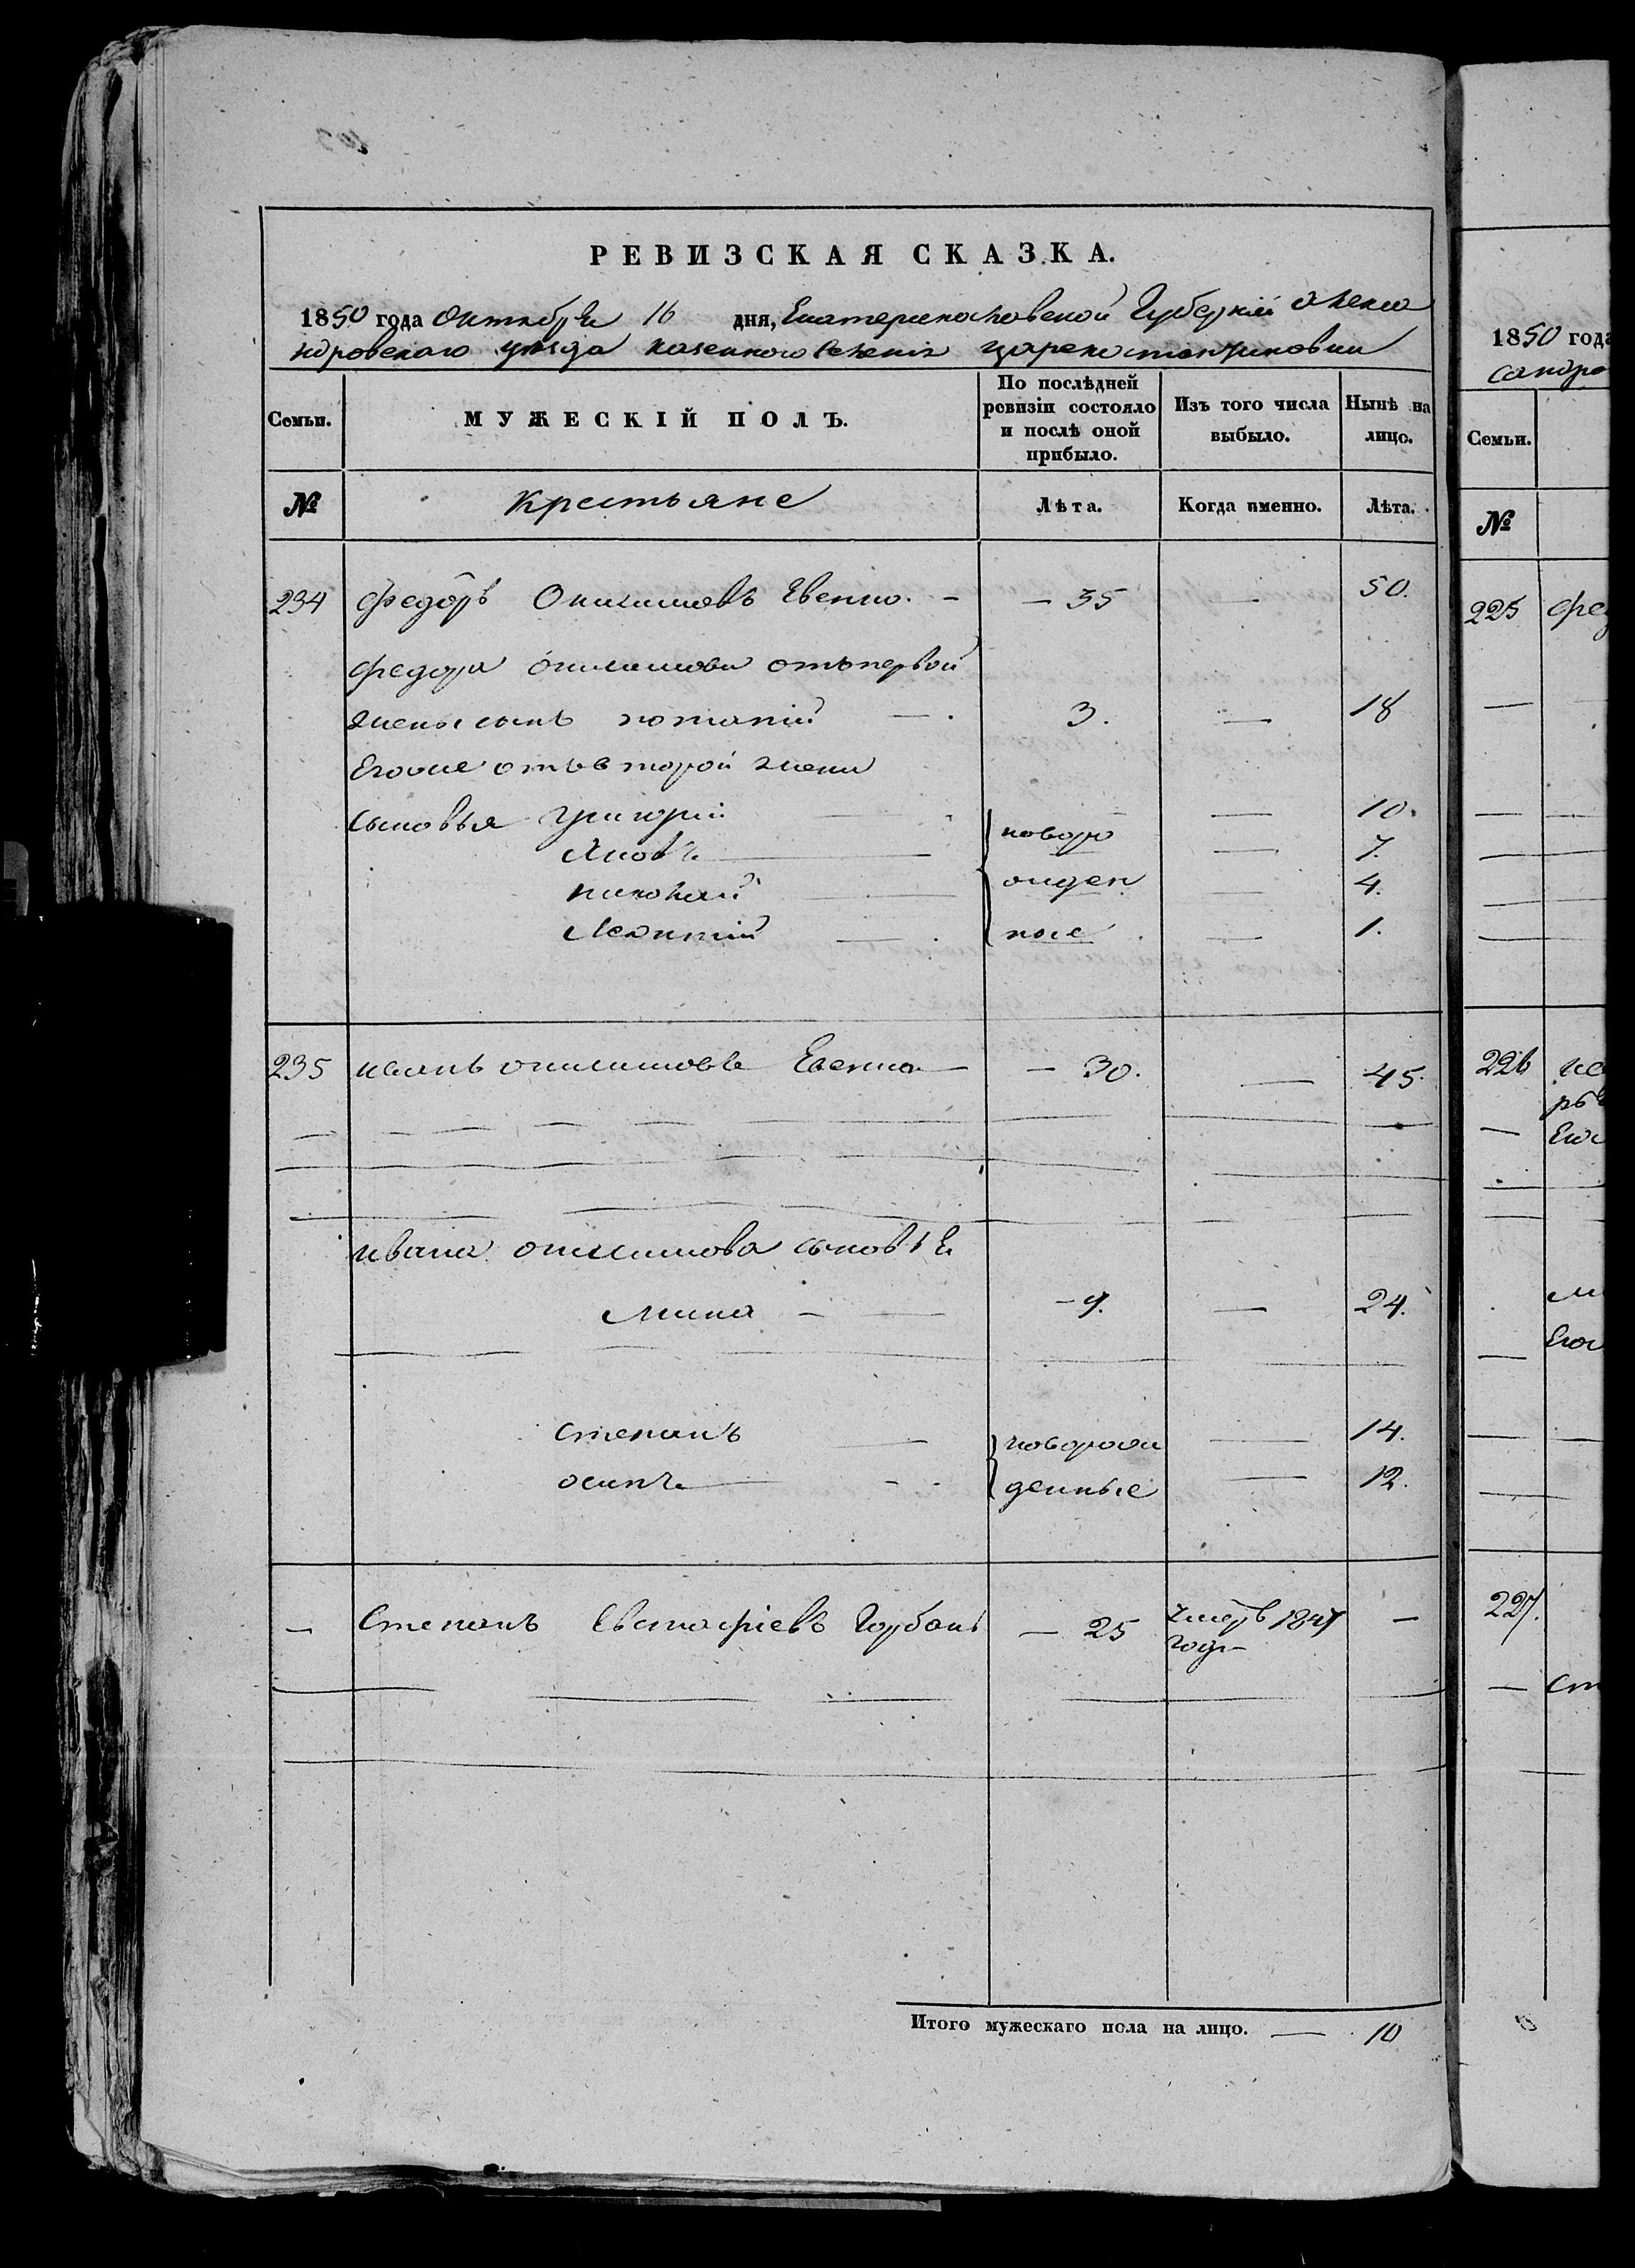 РЕВИЗСКАЯ СКАЗКА.
1850 года Октября 16 дня, Екатеринославской Губерніи Алекса
ндровскаго уѣзда казенного селенія Цареконстантиновки
Семьи.
МУЖЕСКІЙ ПОЛЪ.
По послѣдней ревизіи состояло и послѣ оной прибыло.
Изъ того числа выбыло.
Нынѣ на лицо.
№
Крестьяне
Лѣта.
Когда именно.
Лѣта.
234 Федоръ Онисимовъ Евенко — 35 — 50.
Федора Онисимова отъ первой
жены сынъ Потапій — 3. — 18
Егоже отъ второй жены
сыновья Григорій — новоро — 10.
Яковъ — жден — 7.
Николай — ные — 4.
Леонтій — — 1.
235 Иванъ Онисимовъ Евенко — 30. — 45.
Ивана Онисимова сыновья
Мина — 9. — 24.
Степанъ — новорож — 14.
Осипъ — денные — 12.
— Степанъ Евстафіевъ Горбань — 25 умеръ 1847 —
году
Итого мужескаго пола на лицо. — 10
1850 года
сандро
Семьи.
№
225
226
Его
227.
Ст